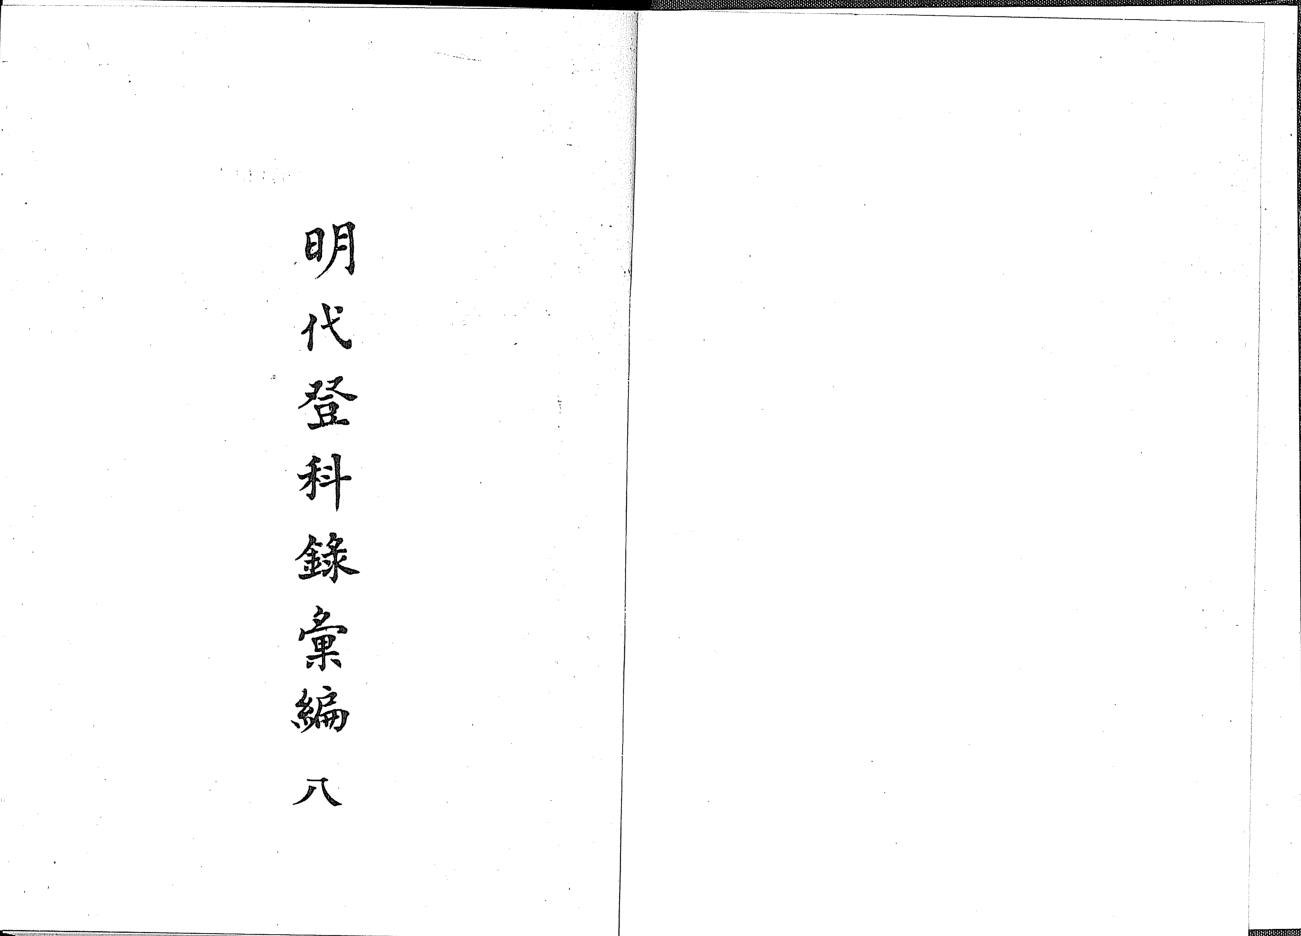 明代登科錄彙編 八